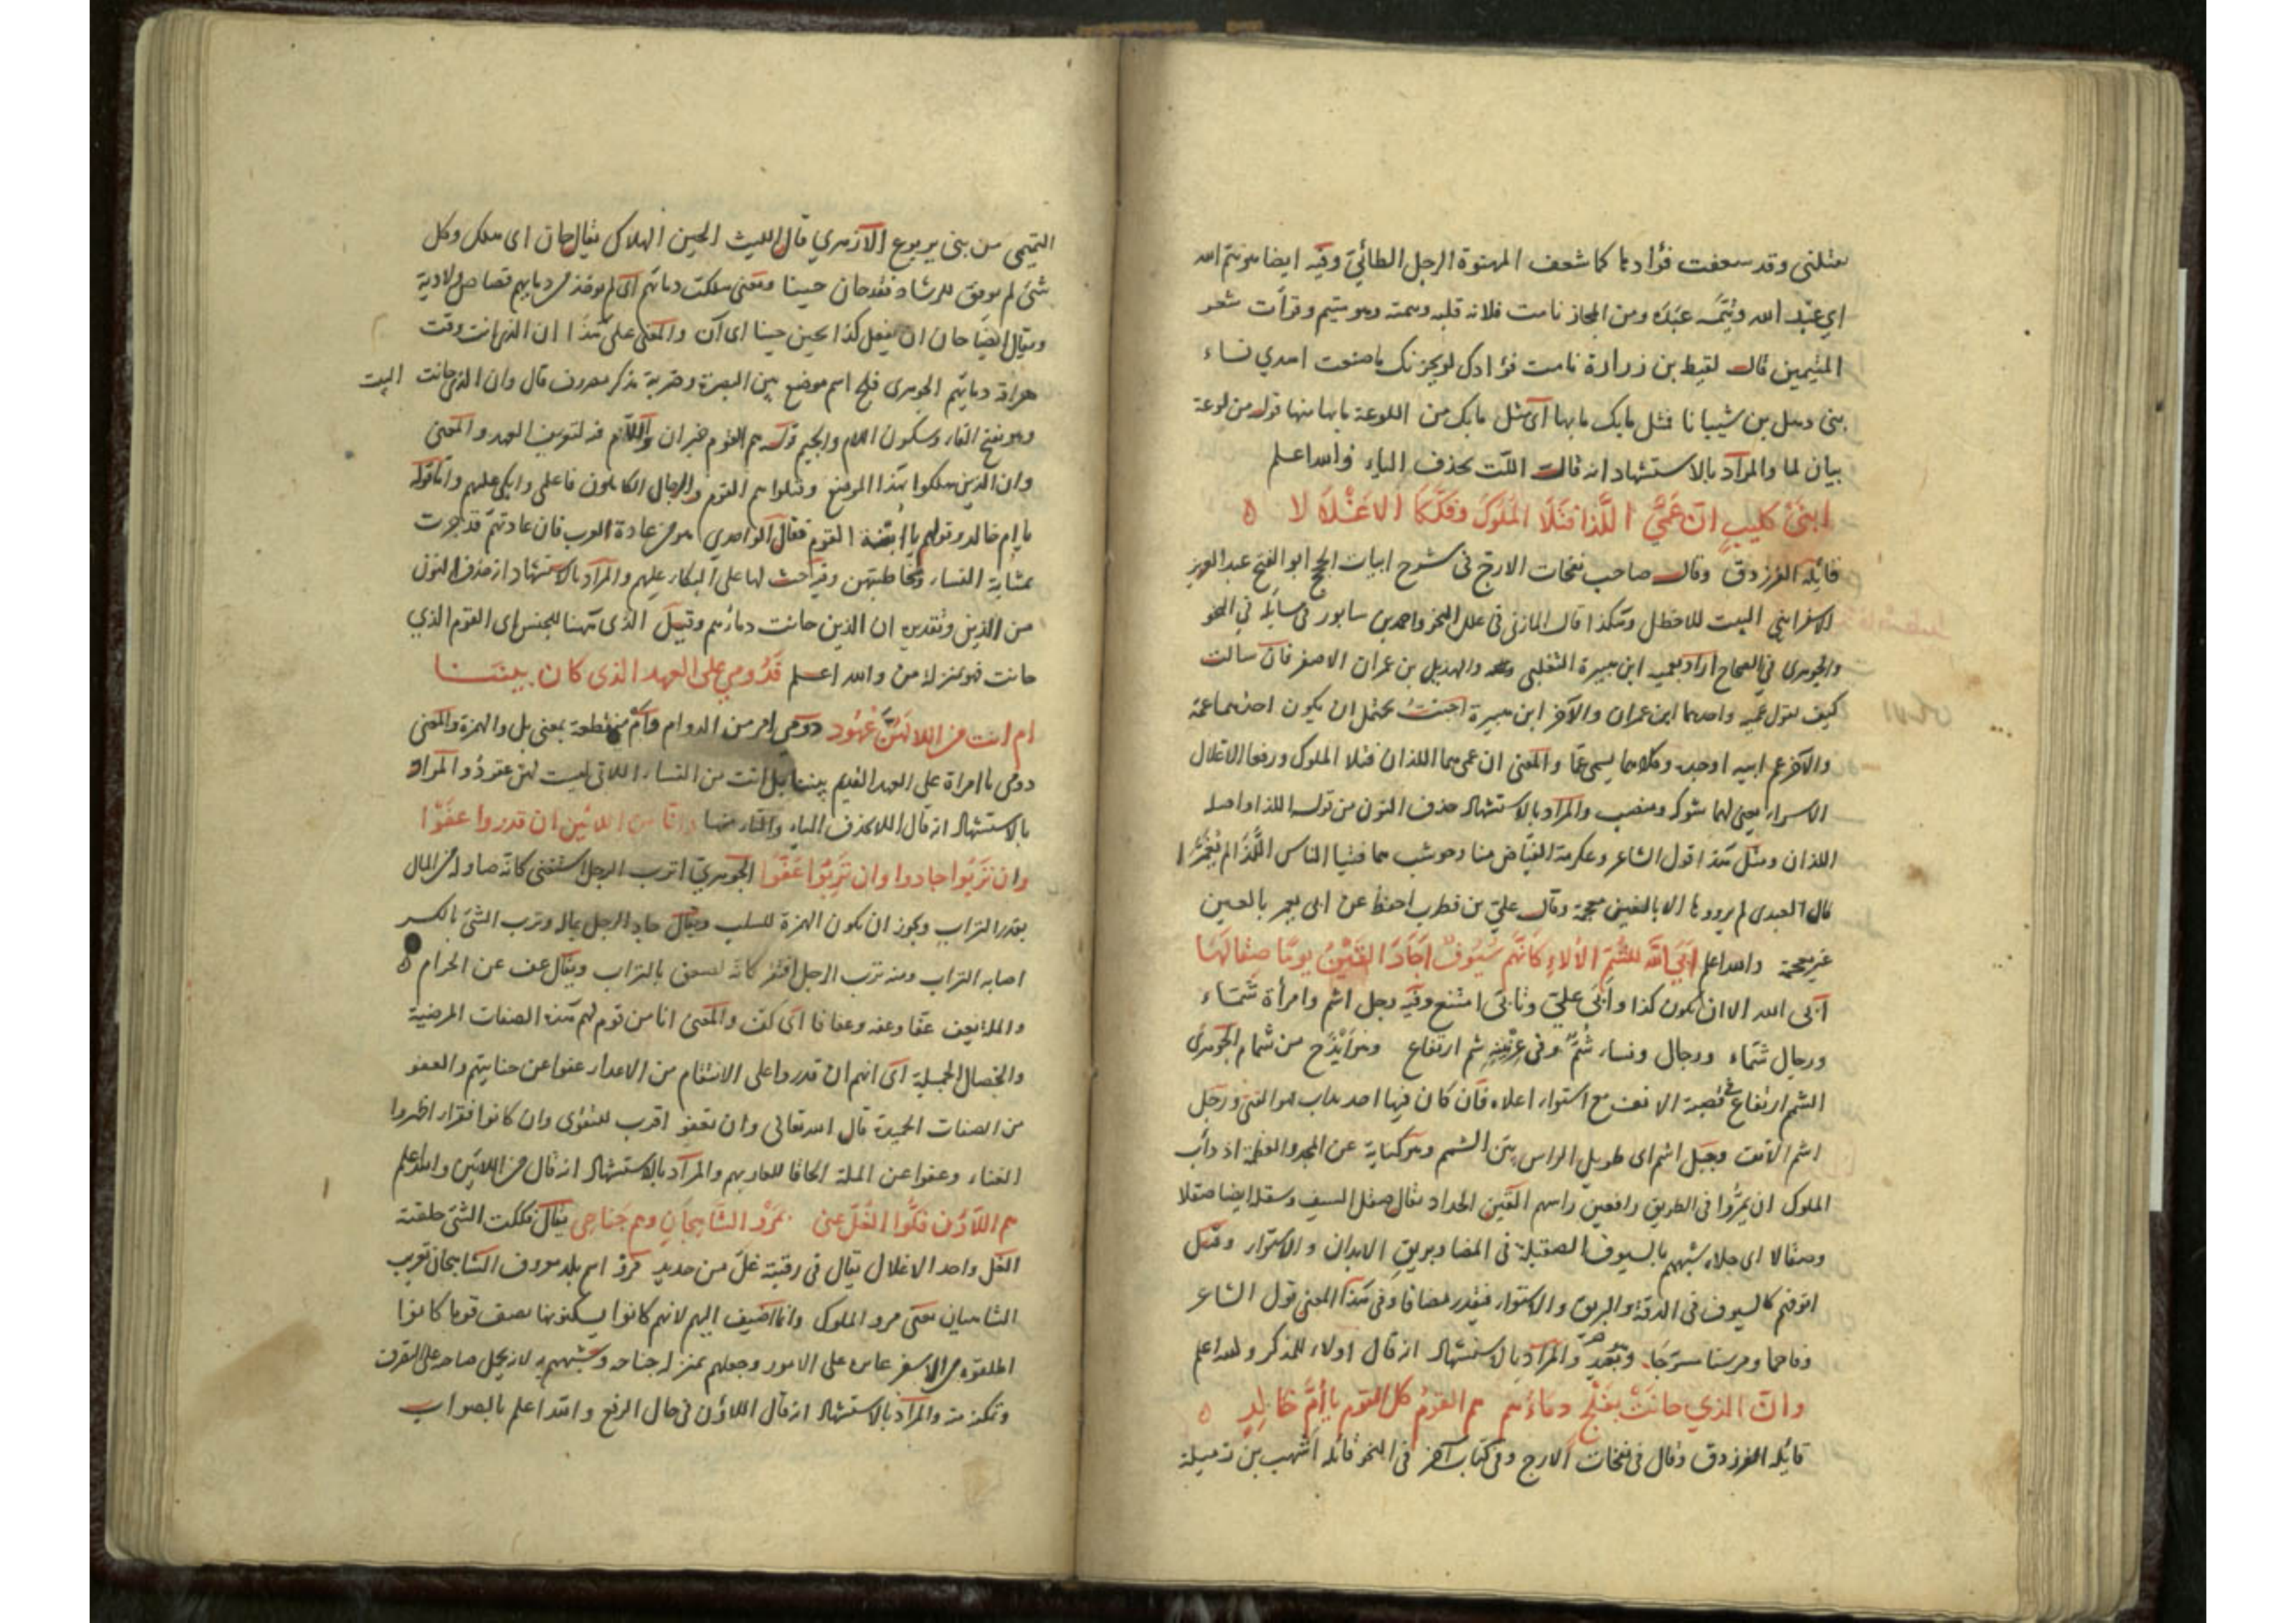 وقد شعفت فؤادها كما شعف المهنوة الرجل الطائي وفيه ايضا هو تيم الله
اي عبد الله وتيمه عبده ومن المجاز تامت فلانة قلبه وتيمته وهو متيم وقرأت شعر
المتيمين قال لقيط بن زرارة تامت فؤادك لو يحزنك ما صنعت احدي نساء
بني ذهل بن شيبانا فمثل ما بك ما بها اي مثل ما بك من اللوعة ما بها منها قوله من لوعة
بيان لما والمراد بالاستشهاد انه قال اللت بحذف الياء والله اعلم
ابني كليب ان عمي اللذا قتلا الملوك وفككا الاغلالا
قائله الفرزدق وقال صاحب نفحات الارج في شرح ابيات الحجج ابو الفتح عبد العزيز
البيت للاخطل وهكذا قال المازني في علل النحو واحمد بن سابور في مسائله في النحو
والجوهري في الصحاح اراد بعميه ابن هبيرة التغلبي والهذيل بن عمران الاصغر فان سألت
كيف تقول عميه واحدهما ابن عمران والآخر ابن هبيرة اجبت يحتمل ان يكون احدهما عمه
والآخر عم ابيه او جده وكلاهما يسمى عما والمعنى ان عمي هما اللذان قتلا الملوك ورفعا الاغلال
الاسرار يعني لهما شوكة ومنصب والمراد بالاستشهاد حذف النون من قوله اللذا واصله
اللذان ومثل هذا قول الشاعر وعكرمة الفياض منا وحوشب هما فتيا الناس اللذا لم
قال العبدي لم يرووها الا بالغين معجمة وقال علي بن قطرب احفظ عن ابي بالعين
غير معجمة والله اعلم ابى الله للشم الألاء كانهم سيوف اجاد القين يوما صقالها
ابى الله الا ان يكون كذا وابى علي وتابى امتنع وفيه رجل اشم وامرأة شماء
ورجال شماء ورجال ونساء شم وفي عرنينه شم ارتفاع وهو من شمام الجوهري
الشمم ارتفاع في قصبة الانف مع استواء اعلاه فان كان فيها احديداب هو القنى ورجل
اشم الانف وجبل اشم اى طويل الراس بين الشمم وهو كناية عن المجد والعظمة اذ دأب
الملوك ان يمروا في الطريق رافعين راسهم القين الحداد يقال صقل السيف وسقله ايضا صقلا
وصقالا اى جلاه شبههم بالسيوف الصقيلة في المضاء وبريق الابدان والاستواء وقيل
انوفهم كالسيوف في الدقة والبريق والاستواء فيقدر مضافا وفي هذا المعنى قول الشاعر
وفاحما ومرسنا مسرجا والمراد بالاستشهاد انه قال اولاء للمذكر والله اعلم
وان الذي حانت بفلج دماءهم هم القوم كل القوم يا أم خالد
قائله الفرزدق وقال في نفحات الارج وفي كتاب آخر في النحو قائله اشهب بن رميلة
التميمي من بني يربوع الازهري قال الليث الحين الهلاك يقال حان اى هلك وكل
شئ لم يوفق للرشاد فقد حان حينا ومعنى هلكت دماؤهم اى لم يؤخذ من دمائهم قصاص ولا دية
ويقال ايضا حان ان يفعل كذا يحين حينا اى آن والمعنى على هذا ان الذي آنت وقت
هراقة دمائهم الجوهري فلج اسم موضع بين البصرة وضرية مذكر مصروف قال وان الذي حانت البيت
وهو بفتح الفاء وسكون اللام والجيم قوله هم القوم خبر ان واللام فيه لتعريف العهد والمعنى
وان الذين هلكوا بهذا الموضع وقتلوا هم القوم والرجال الكاملون فاعلمي وابكي عليهم واما قوله
يا ام خالد وقولهم يا ابنة القوم فقال الواحدي هو من عادة العرب فان عادتهم قد جرت
بمشابة النساء ومخاطبتهن وفيه حث لها على البكاء عليهم والمراد بالاستشهاد انه حذف النون
من الذين وتقديره ان الذين حانت دماؤهم وقيل الذى ههنا للجنس اى القوم الذي
حانت فهو بمنزلة من والله اعلم قدومي على العهد الذى كان بيننا
ام انت من اللا لهن عهود دومى امر من الدوام وام منقطعة بمعنى بل والهمزة والمعنى
دومى يا امراة على العهد القديم بيننا بل انت من النساء اللاتي ليست لهن عقود والمراد
بالاستشهاد انه قال اللا بحذف الياء والتاء منها وانا من اللائين ان قدروا عفوا
وان تربوا جادوا وان تربوا عفوا الجوهري اترب الرجل استغنى كانه صار له من المال
بقدر التراب ويجوز ان يكون الهمزة للسلب ويقال جاد الرجل بماله وترب الشئ بالكسر
اصابه التراب ومنه ترب الرجل افتقر كانه لصق بالتراب ويقال عف عن الحرام
يعف عفا وعفة وعفافا اى كف والمعنى انا من قوم لهم هذه الصفات المرضية
والخصال الجميلة اى انهم ان قدروا على الانتقام من الاعداء عفوا عن جنايتهم والعفو
من الصفات الحميدة قال الله تعالى وان تعفو اقرب للتقوى وان كانوا فقراء اظهروا
الغناء وعفوا عن المراد بالاستشهاد انه قال من اللائين والله اعلم
هم اللاؤن فكوا الغل عني بمرو الشاهجان وهم جناحي يقال فككت الشئ خلصته
الغل واحد الاغلال يقال في رقبته غل من حديد مرو اسم بلد معروف الشاهجان تعريب
الشاهيان يعني مرو الملوك وانما اضيف اليهم لانهم كانوا يسكنونها يصف قوما كانوا
اطلقوه من الاسر على الامور وجعلهم بمنزلة جناحه وشبههم به لانه يحمل صاحبه على التصرف
وتمكنه منه والمراد بالاستشهاد انه قال اللاؤن في حال الرفع والله اعلم بالصواب